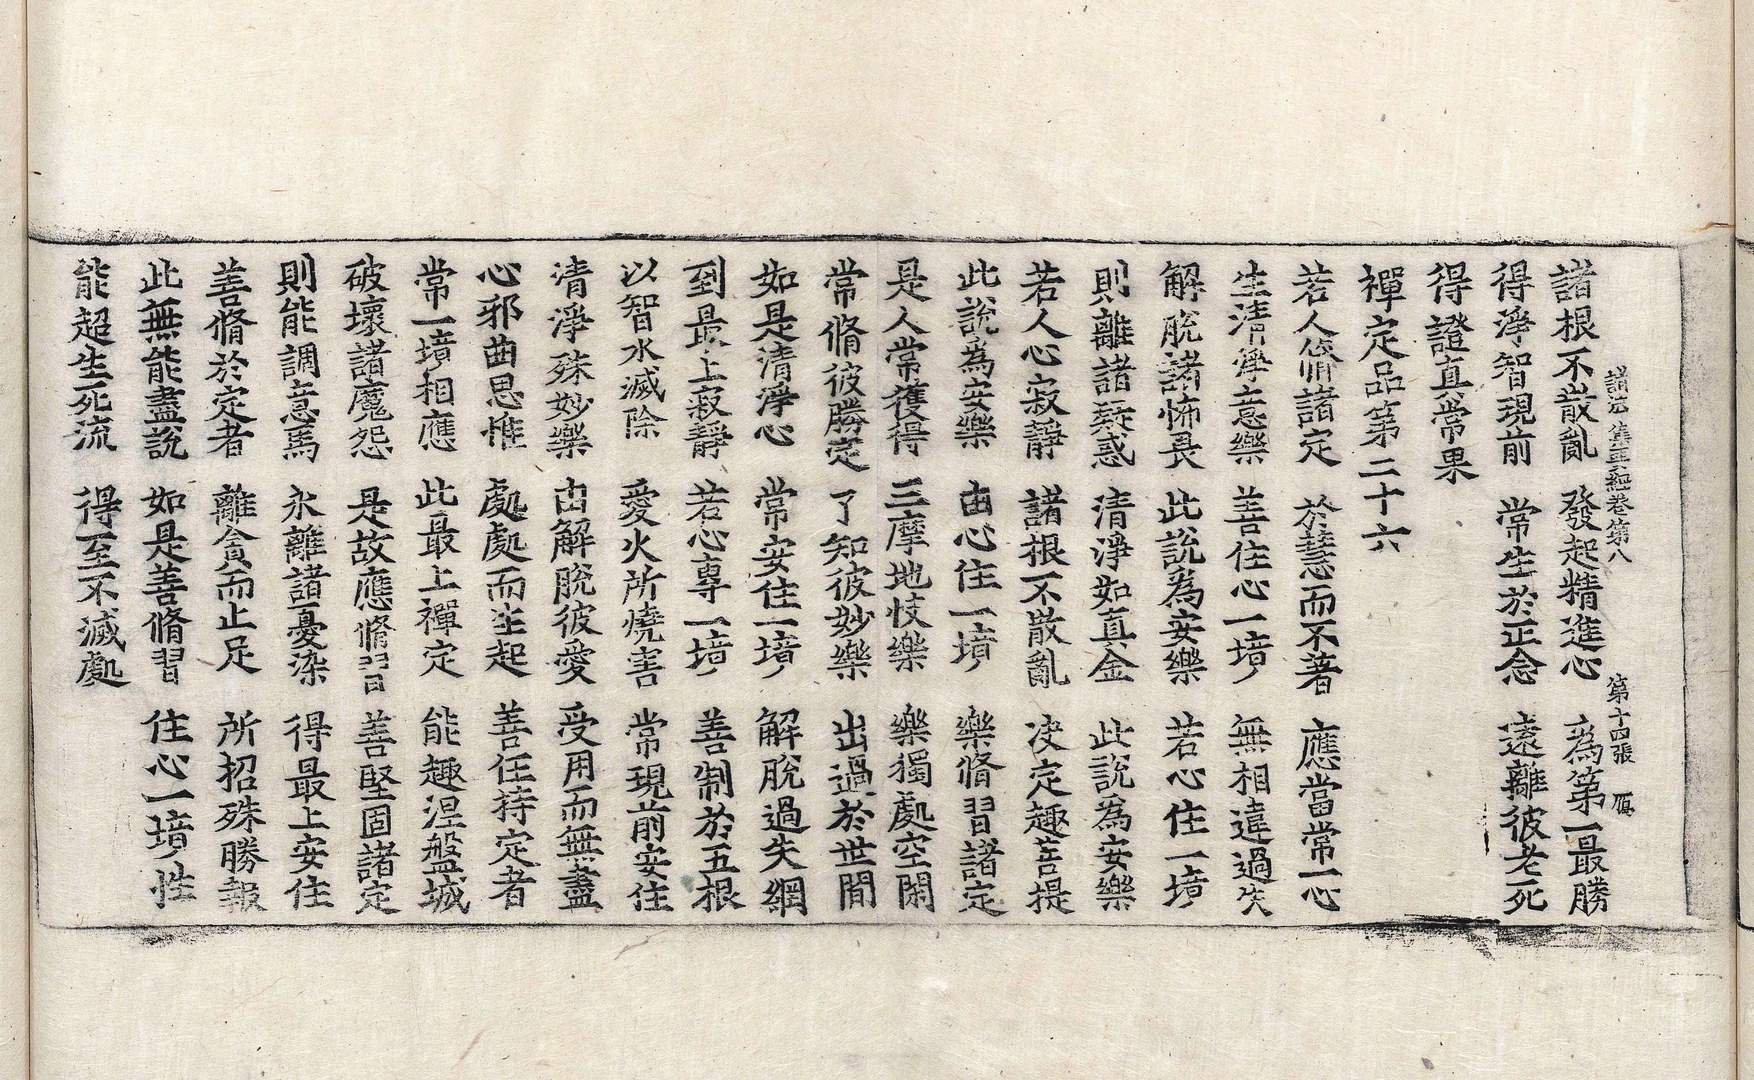 諸法集要經卷第八　第十四張　雁
諸根不散亂　發起精進心　為第一最勝
得淨智現前　常生於正念　遠離彼老死
得證真常果
禪定品第二十六
若人脩諸定　於慧而不著　應當常一心
生清淨意樂　善住心一境　無相違過失
解脫諸怖畏　此說為安樂　若心住一境
則離諸疑惑　清淨如真金　此說為安樂
若人心寂靜　諸根不散亂　决定趣菩提
此說為安樂　由心住一境　樂脩習諸定
是人常獲得　三摩地忮樂　樂獨處空閑
常脩彼勝定　了知彼妙樂　出過於世間
如是清淨心　常安住一境　解脫過失網
到最上寂靜　若心專一境　善制於五根
以智水滅除　愛火所燒害　常現前安住
清淨殊妙樂　由解脫彼愛　受用而無盡
心邪曲思惟　處處而生起　善任持定者
常一境相應　此最上禪定　能趣涅盤城
破壞諸魔怨　是故應脩習　善堅固諸定
則能調意馬　永離諸憂染　得最上安住
善脩於定者　離貪而止足　所招殊勝報
此無能盡說　如是善脩習　住心一境性
能超生死流　得至不滅處